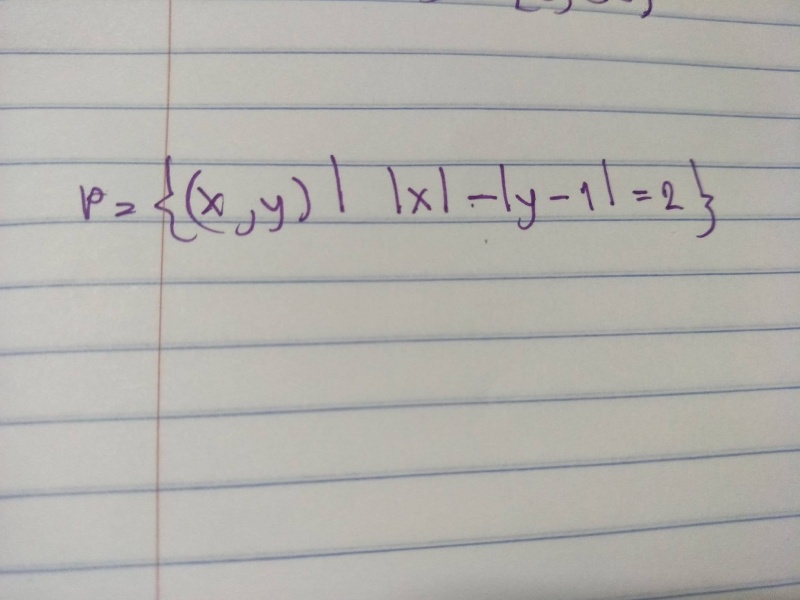 P = {(x, y) | |x| - |y - 1| = 2}